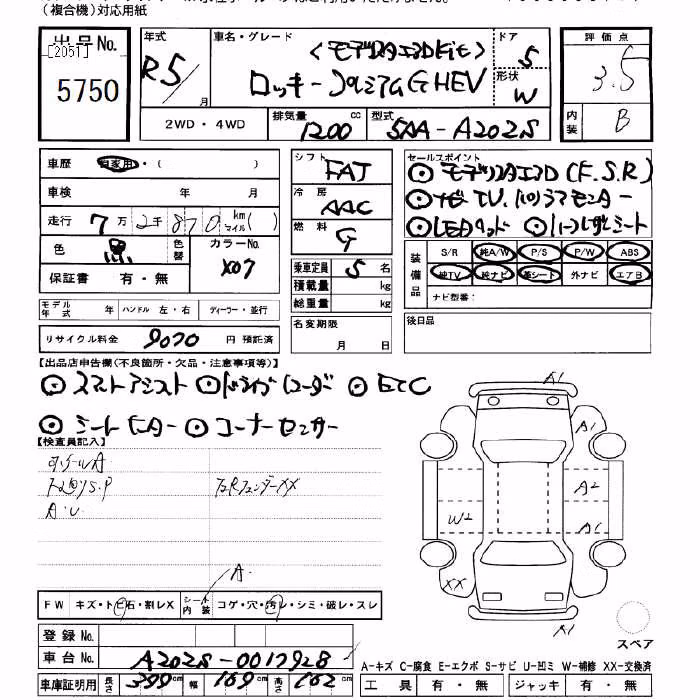 (複合機)対応用紙
出品No.
[2051]
5750
年式
R5
月
車名・グレード
<モデリスタエアロKit>
ロッキー プレミアムG HEV
ドア
5
形状
W
評価点
3.5
内装
B
2WD・4WD
排気量
1200 cc
型式
5AA-A202S
車歴 自家用・( )
車検 年 月
走行 7万2千870 km マイル( )
色 黒 色替
カラーNo.
X07
保証書 有・無
シフト
FAT
冷房
AAC
燃料
G
乗車定員 5 名
積載量 kg
総重量 kg
セールスポイント
◎モデリスタエアロ(F.S.R)
◎ナビTV.パノラマモニター
◎LEDヘッド ◎ハーフレザーシート
装備品
S/R 純A/W P/S P/W ABS
純TV 純ナビ 革シート 外ナビ エアB
ナビ型番:
モデル年式 年 ハンドル 左・右 ディーラー・並行
リサイクル料金 9070 円 預託済
名変期限
月 日
後日品
【出品店申告欄(不良箇所・欠品・注意事項等)】
◎スマートアシスト ◎ドライブレコーダー ◎ETC
◎シートヒーター ◎コーナーセンサー
【検査員記入】
S.P
A.U
XX
A.
FW キズ・トビ石・割レX シート内装 コゲ・穴・汚レ・シミ・破レ・スレ
登録No.
車台No. A202S-0017928
車庫証明用 長さ 399 cm 幅 169 cm 高さ 162 cm
A1
A1
A2
W2
A1
XX
A1
スペア
A-キズ C-腐食 E-エクボ S-サビ U-凹ミ W-補修 XX-交換済
工具 有・無 ジャッキ 有・無